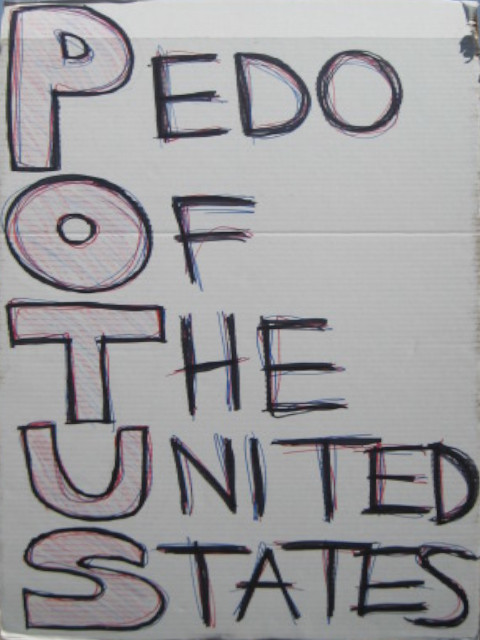 PEDO
OF
THE
UNITED
STATES